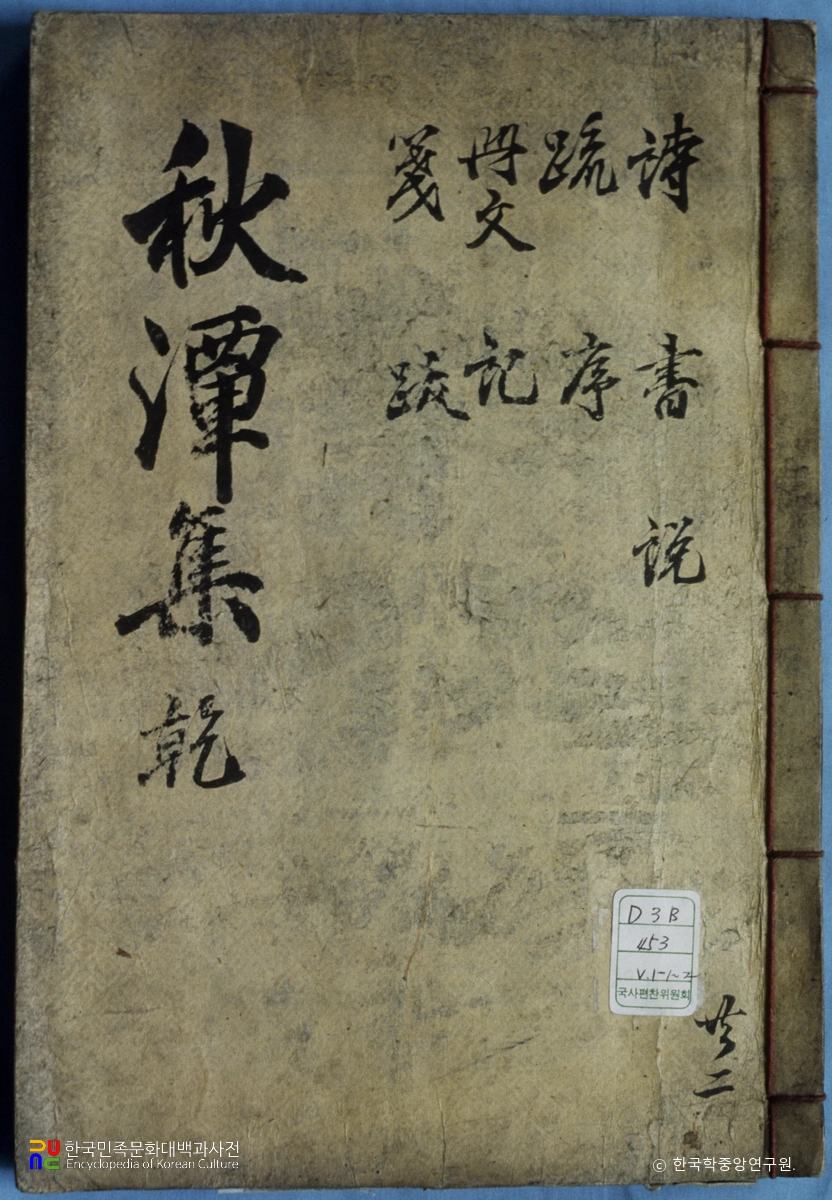 詩 書 説
疏 序
冊文 記
箋 跋
秋潭集 乾
共二
D3B
453
V.1-1~2
국사편찬위원회
한국민족문화대백과사전
Encyclopedia of Korean Culture
ⓒ 한국학중앙연구원.